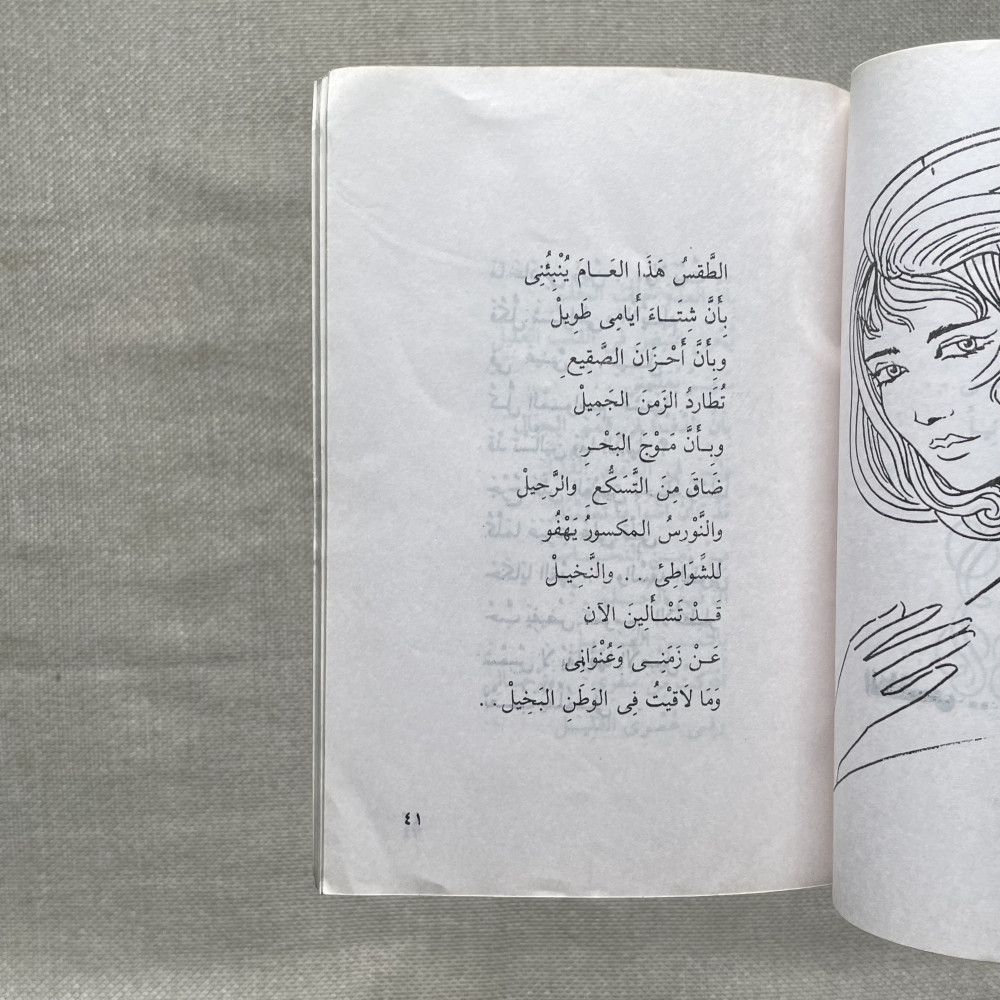 الطَّقسُ هَذَا العَـــامَ يُنْبِئُنِى
بِأَنَّ شِتَـــاءَ أَيامِى طَوِيلْ
وبِأَنَّ أَحْـزَانَ الصَّقِيعِ
تُطَاردُ الزَمنَ الجَمِيلْ
وبِــأَنَّ مَـوْجَ البَحْـرِ
ضَاقَ مِنَ التَّسَكُّعِ والرَّحِيلْ
والنَّوْرسُ المَكسورُ يَهْفُو
للشَّوَاطِئ . . والنَّخِيـلْ
قَــدْ تَسْـأَلِينَ الآنَ
عَـنْ زَمَنِــى وَعُنْوَانِى
وَمَا لَاقيْتُ فِى الوَطَنِ البَخِيلْ . .
٤١